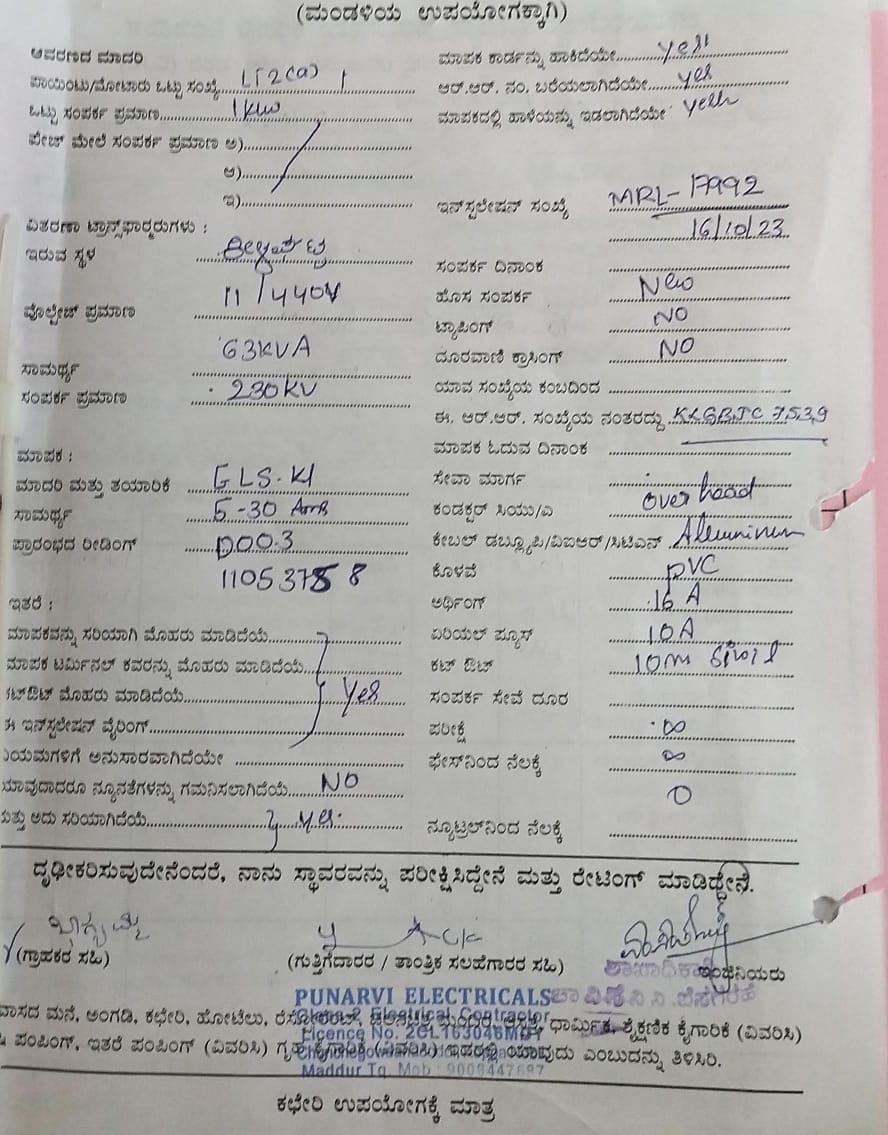 (ಮಂಡಳಿಯ ಉಪಯೋಗಕ್ಕಾಗಿ)
ಆವರಣದ ಮಾದರಿ
ಮಾಪಕ ಕಾರ್ಡನ್ನು ಹಾಕಿದೆಯೇ yes
ಪಾಯಿಂಟು/ಮೋಟಾರು ಒಟ್ಟು ಸಂಖ್ಯೆ LT2(a) 1
ಆರ್.ಆರ್. ನಂ. ಬರೆಯಲಾಗಿದೆಯೇ yes
ಒಟ್ಟು ಸಂಪರ್ಕ ಪ್ರಮಾಣ 1kw
ಮಾಪಕದಲ್ಲಿ ಹಾಳೆಯನ್ನು ಇಡಲಾಗಿದೆಯೇ yes
ಪೇಜ್ ಮೇಲೆ ಸಂಪರ್ಕ ಪ್ರಮಾಣ ಅ)
ಆ)
ಇ)
ಇನ್‌ಸ್ಟಲೇಷನ್ ಸಂಖ್ಯೆ MRL-17992
ವಿತರಣಾ ಟ್ರಾನ್ಸ್‌ಫಾರ್ಮರುಗಳು :
16/10/23
ಇರುವ ಸ್ಥಳ
ಸಂಪರ್ಕ ದಿನಾಂಕ
ವೊಲ್ಟೇಜ್ ಪ್ರಮಾಣ 11/440V
ಹೊಸ ಸಂಪರ್ಕ New
ಟ್ಯಾಪಿಂಗ್ NO
ಸಾಮರ್ಥ್ಯ 63KVA
ದೂರವಾಣಿ ಕ್ರಾಸಿಂಗ್ NO
ಸಂಪರ್ಕ ಪ್ರಮಾಣ 230KV
ಯಾವ ಸಂಖ್ಯೆಯ ಕಂಬದಿಂದ
ಈ. ಆರ್.ಆರ್. ಸಂಖ್ಯೆಯ ನಂತರದ್ದು KLGBJC 7539
ಮಾಪಕ :
ಮಾಪಕ ಓದುವ ದಿನಾಂಕ
ಮಾದರಿ ಮತ್ತು ತಯಾರಿಕೆ
ಸೇವಾ ಮಾರ್ಗ over head
ಸಾಮರ್ಥ್ಯ 5-30 Amp
ಕಂಡಕ್ಟರ್ ಸಿಯು/ಎ
ಪ್ರಾರಂಭದ ರೀಡಿಂಗ್ 000.3
ಕೇಬಲ್ ಡಬ್ಲ್ಯೂಪಿ/ವಿಐಆರ್/ಸಿಟಿಎನ್ Aleuminum
ಕೊಳವೆ PVC
ಇತರೆ :
ಅರ್ಥಿಂಗ್ 16 A
ಮಾಪಕವನ್ನು ಸರಿಯಾಗಿ ಮೊಹರು ಮಾಡಿದೆಯೇ
ಏರಿಯಲ್ ಫ್ಯೂಸ್ 10A
ಮಾಪಕ ಟರ್ಮಿನಲ್ ಕವರನ್ನು ಮೊಹರು ಮಾಡಿದೆಯೇ
ಕಟ್ ಔಟ್ 10m
ಕಟ್‌ಔಟ್ ಮೊಹರು ಮಾಡಿದೆಯೇ Yes
ಸಂಪರ್ಕ ಸೇವೆ ದೂರ
ಈ ಇನ್‌ಸ್ಟಲೇಷನ್ ವೈರಿಂಗ್
ಪರೀಕ್ಷೆ ∞
ನಿಯಮಗಳಿಗೆ ಅನುಸಾರವಾಗಿದೆಯೇ
ಫೇಸ್‌ನಿಂದ ನೆಲಕ್ಕೆ ∞
ಯಾವುದಾದರೂ ನ್ಯೂನತೆಗಳನ್ನು ಗಮನಿಸಲಾಗಿದೆಯೆ NO
0
ಮತ್ತು ಅದು ಸರಿಯಾಗಿದೆಯೆ yes.
ನ್ಯೂಟ್ರಲ್‌ನಿಂದ ನೆಲಕ್ಕೆ
ದೃಢೀಕರಿಸುವುದೇನೆಂದರೆ, ನಾನು ಸ್ಥಾವರವನ್ನು ಪರೀಕ್ಷಿಸಿದ್ದೇನೆ ಮತ್ತು ರೇಟಿಂಗ್ ಮಾಡಿದ್ದೇನೆ.
(ಗ್ರಾಹಕರ ಸಹಿ)
(ಗುತ್ತಿಗೆದಾರರ / ತಾಂತ್ರಿಕ ಸಲಹೆಗಾರರ ಸಹಿ)
ಇಂಜಿನಿಯರು
PUNARVI ELECTRICALS
Electrical Contractor
Licence No.
Maddur Tq. Mob :
ವಾಸದ ಮನೆ, ಅಂಗಡಿ, ಕಛೇರಿ, ಹೋಟೆಲು, ಧಾರ್ಮಿಕ, ಶೈಕ್ಷಣಿಕ ಕೈಗಾರಿಕೆ (ವಿವರಿಸಿ)
ಪಂಪಿಂಗ್, ಇತರೆ ಪಂಪಿಂಗ್ (ವಿವರಿಸಿ) ಗೃಹ ಕೈಗಾರಿಕೆ (ವಿವರಿಸಿ) ಇವರಲ್ಲಿ ಯಾವುದು ಎಂಬುದನ್ನು ತಿಳಿಸಿರಿ.
ಕಛೇರಿ ಉಪಯೋಗಕ್ಕೆ ಮಾತ್ರ